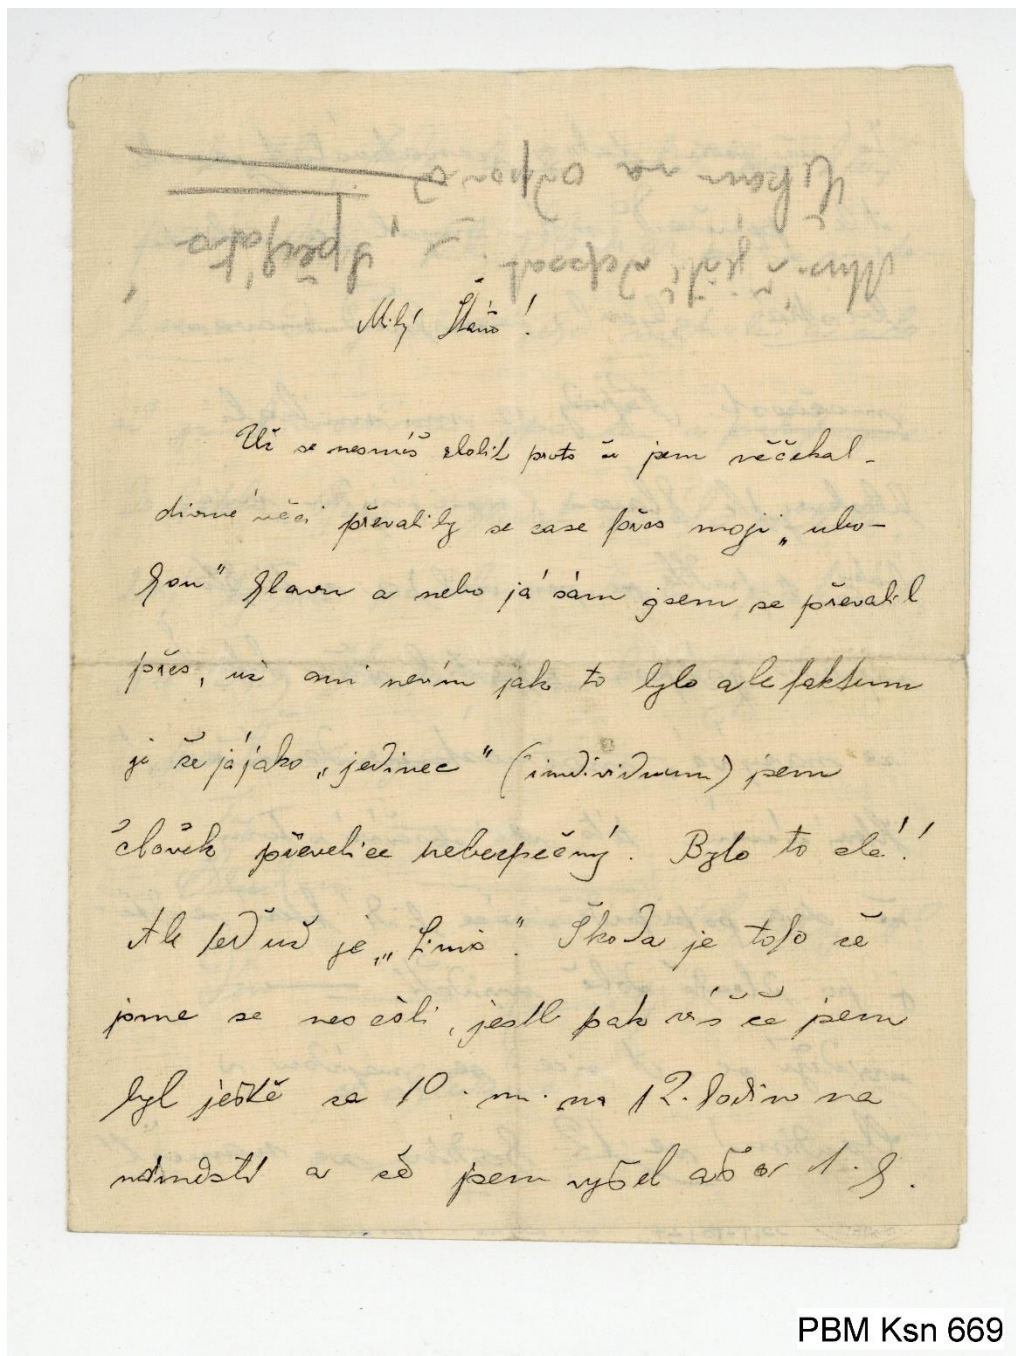 Čekám na odpověď
Milý Stáňo!
Už se nesmíš zlobit proto že jsem nečekal –
divné věci převalily se zase přes moji „ubo-
hou" hlavu a nebo já sám jsem se převalil
přes, už ani nevím jak to bylo ale faktum
je že já jako „jedinec" (individuum) jsem
človék převelice nebezpečný. Bylo to zlé!
Ale teď už je „fuč". Škoda je toho že
jsme se nesešli, jestli pak víš že jsem
byl ještě za 10. m. na 12. hodinu na
náměstí a že jsem vyšel až v 1. h.
PBM Ksn 669